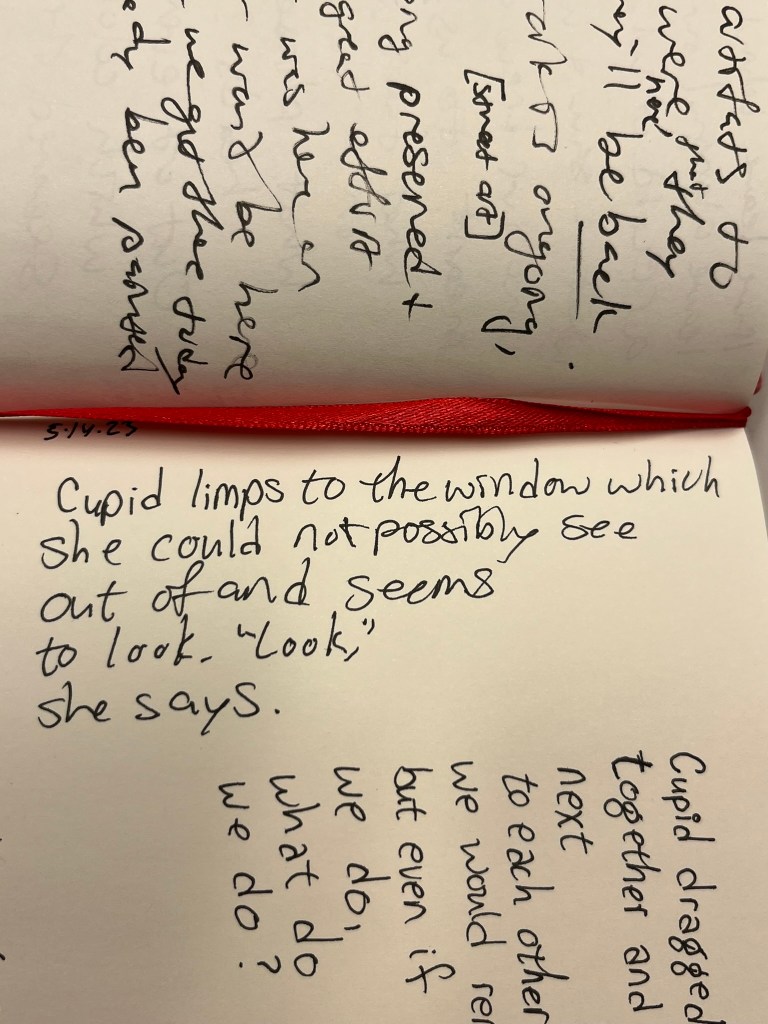 artifacts to
were that they
now,
they'll be back.
ongoing,
[smart art]
presented +
great effort
was her in
won't be here
we got there today
been painted
5.14.23
Cupid limps to the window which
she could not possibly see
out of and seems
to look. "Look,"
she says.
Cupid dragged
together and
next
to each other
we would
but even if
we do,
what do
we do?